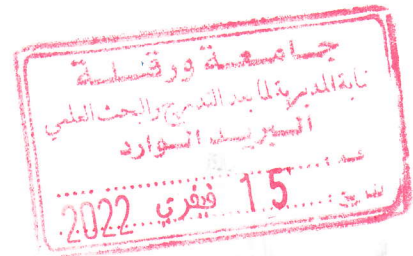 جامعة ورقلة
نيابة المديرية لما بعد التدرج والبحث العلمي
البريد الوارد
عدد:
15 فيفري 2022